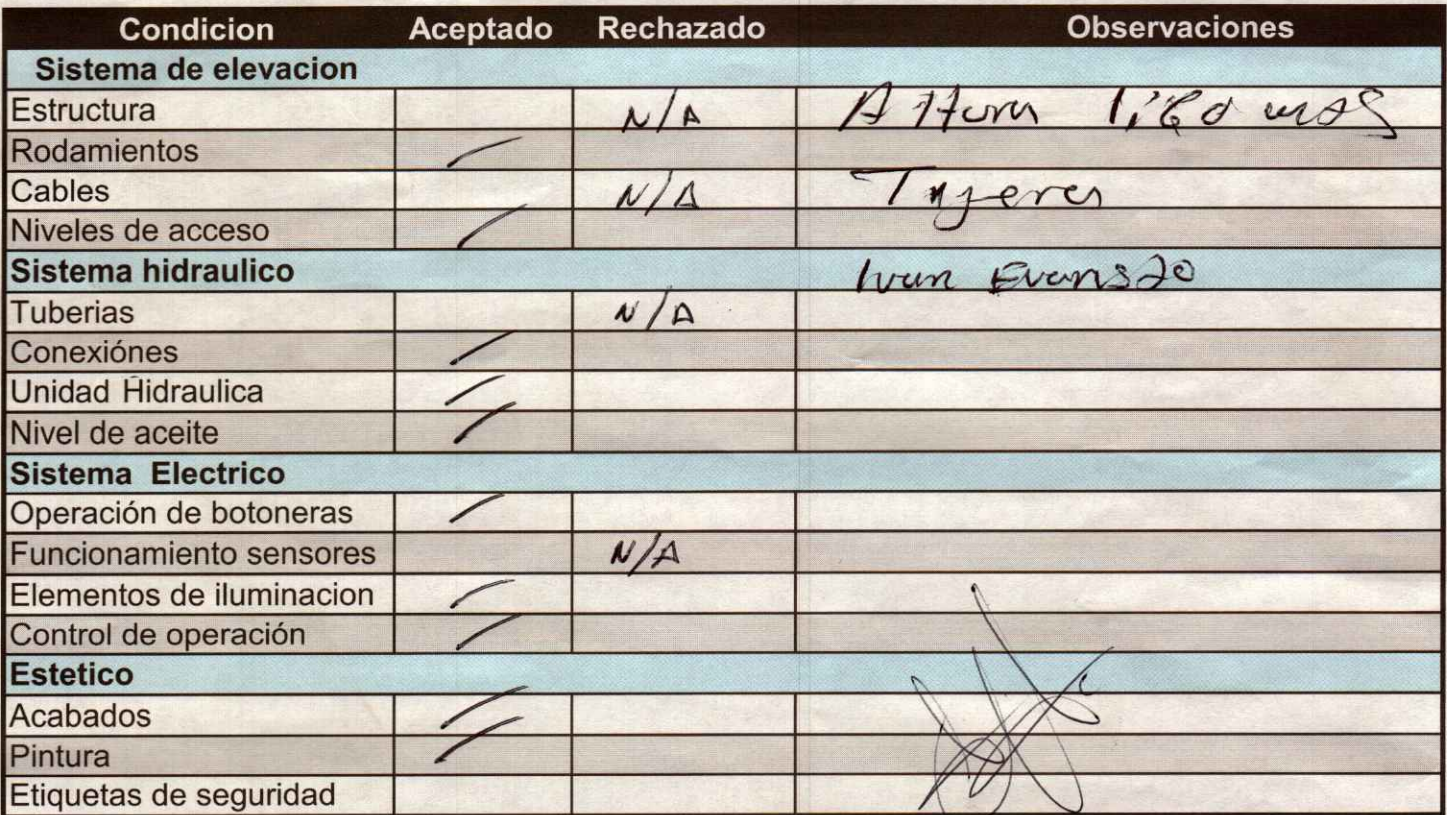 Condicion Aceptado Rechazado Observaciones
Sistema de elevacion
Estructura N/A Altura
Rodamientos
Cables N/A Tijeras
Niveles de acceso
Sistema hidraulico Ivan
Tuberias N/A
Conexiónes
Unidad Hidraulica
Nivel de aceite
Sistema Electrico
Operación de botoneras
Funcionamiento sensores N/A
Elementos de iluminacion
Control de operación
Estetico
Acabados
Pintura
Etiquetas de seguridad